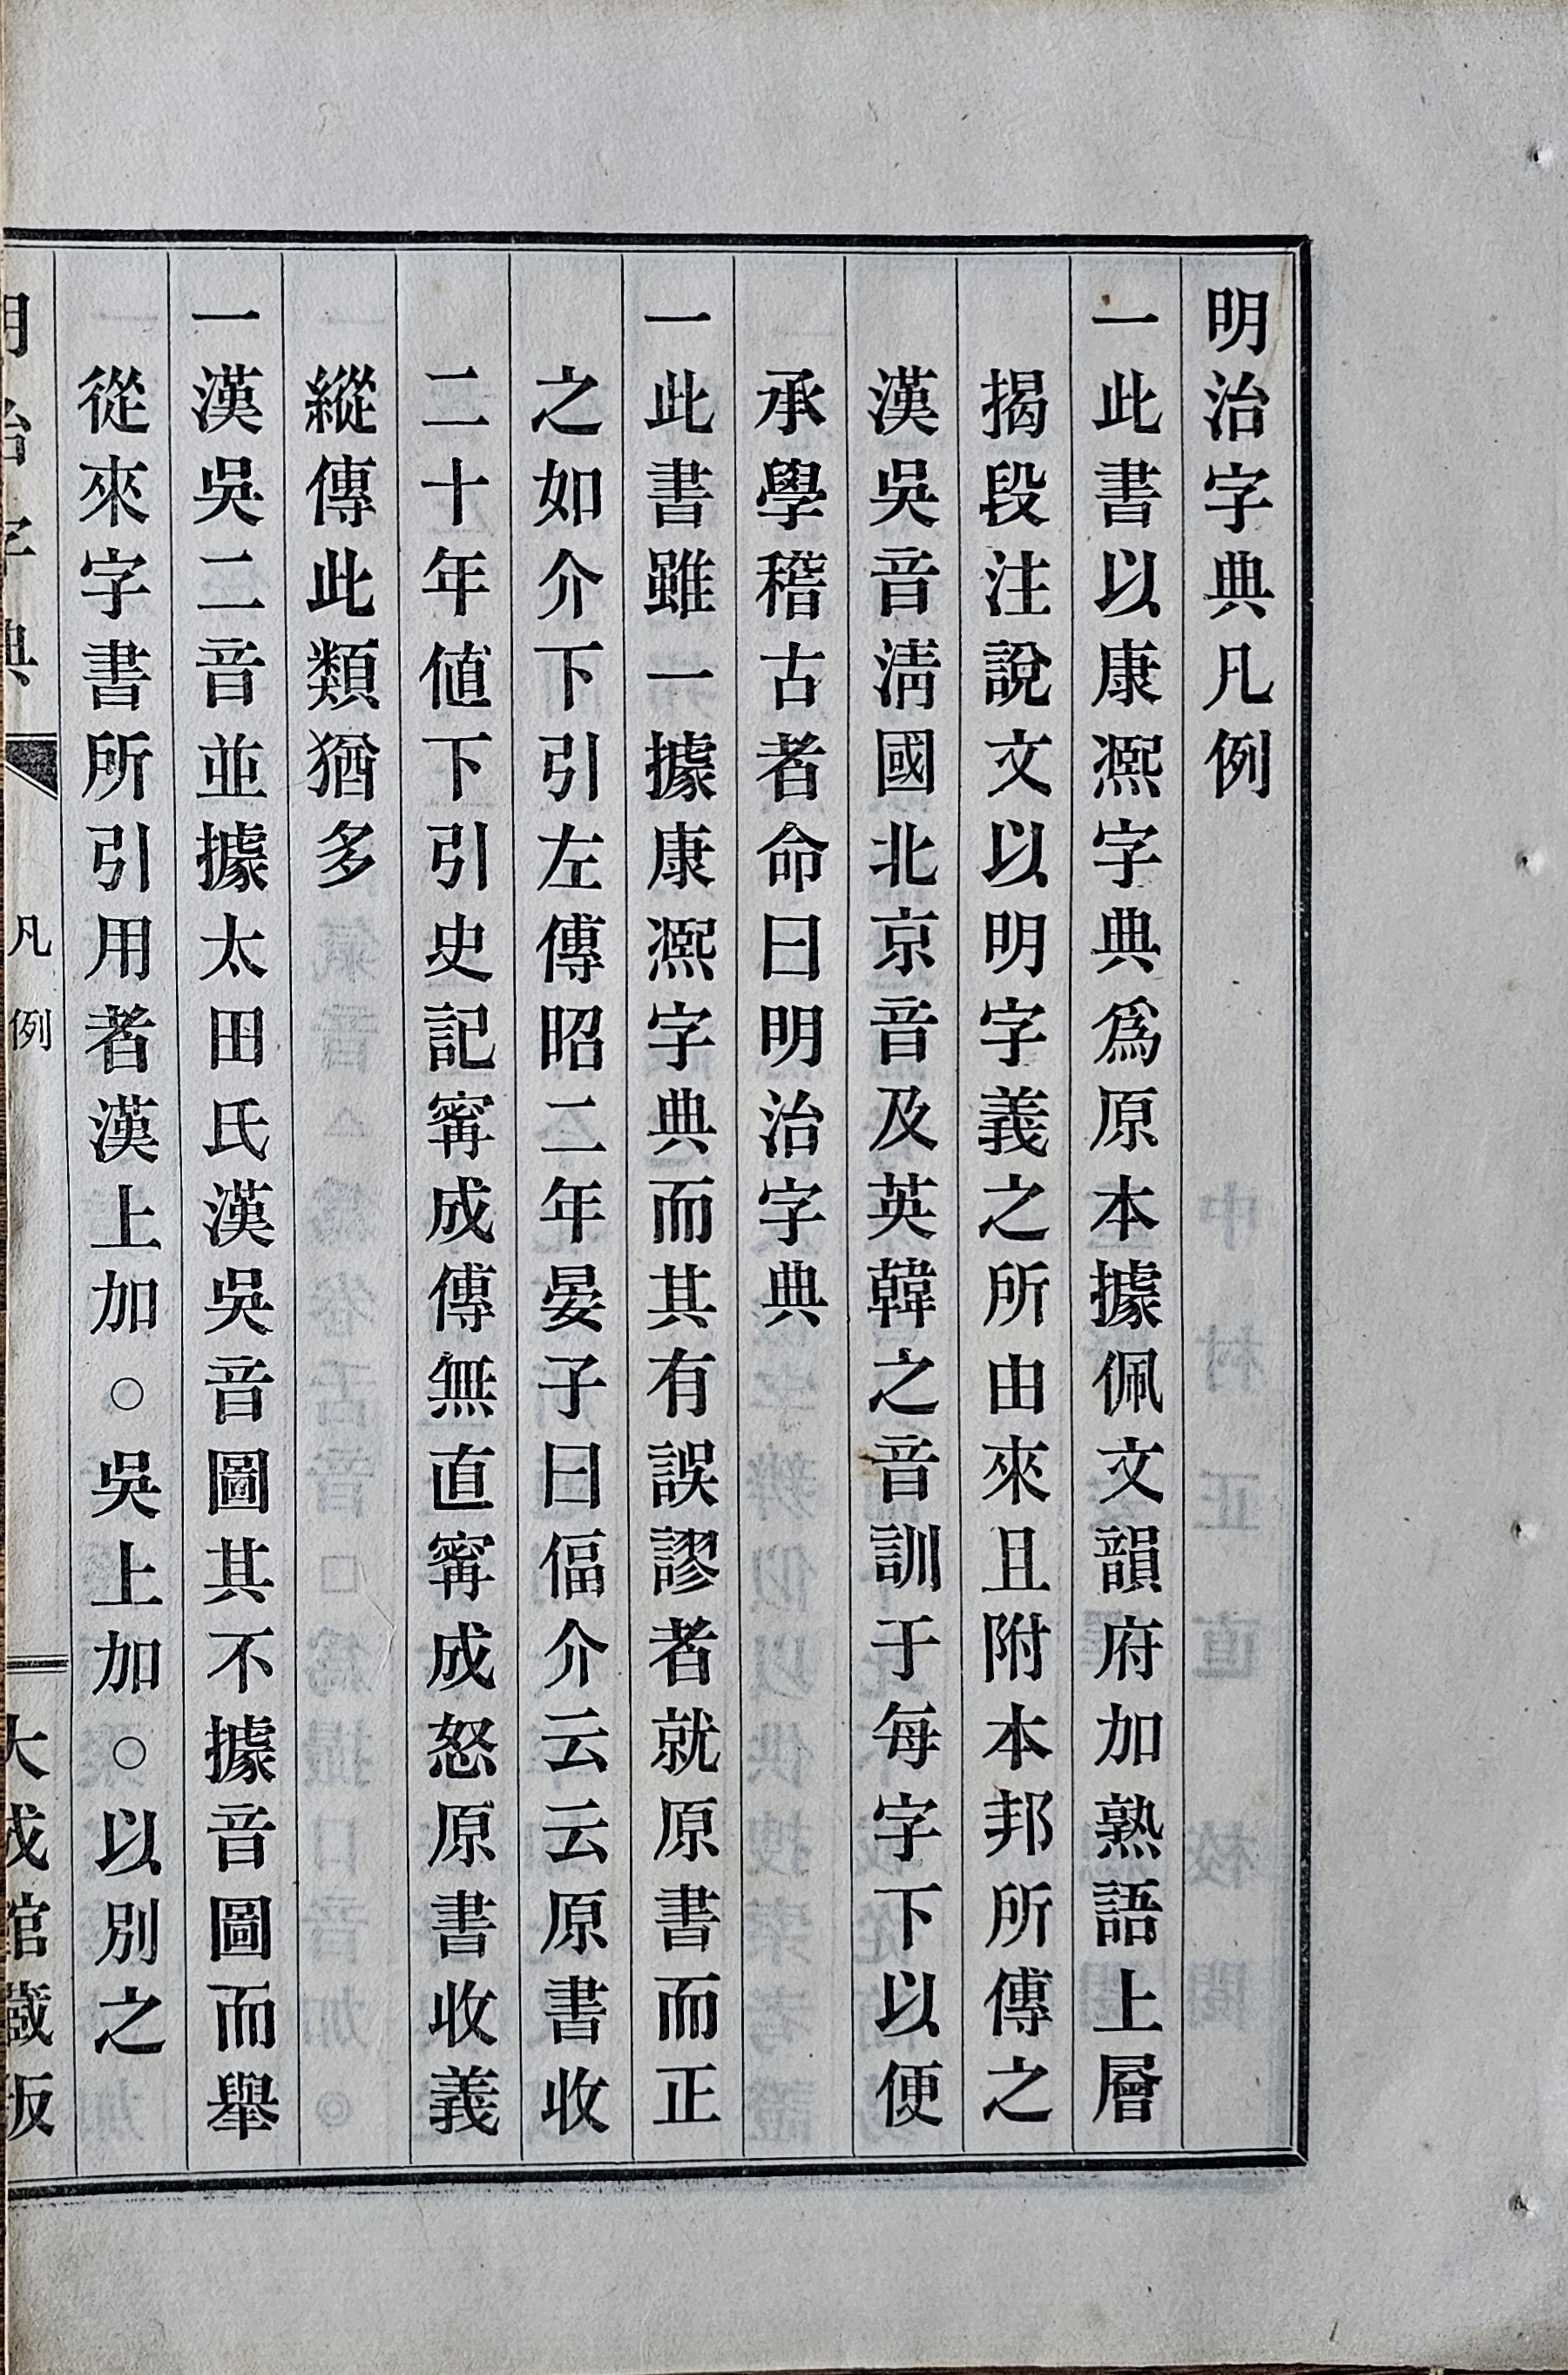 明治字典凡例
一此書以康凞字典爲原本據佩文韻府加熟語上層
揭段注說文以明字義之所由來且附本邦所傳之
漢吳音淸國北京音及英韓之音訓于每字下以便
承學稽古者命曰明治字典
一此書雖一據康凞字典而其有誤謬者就原書而正
之如介下引左傳昭二年晏子曰偪介云云原書收
二十年値下引史記寗成傳無直寗成怒原書收義
縱傳此類猶多
一漢吳二音並據太田氏漢吳音圖其不據音圖而擧
從來字書所引用者漢上加○吳上加○以別之
明治字典
凡例
大成館藏版